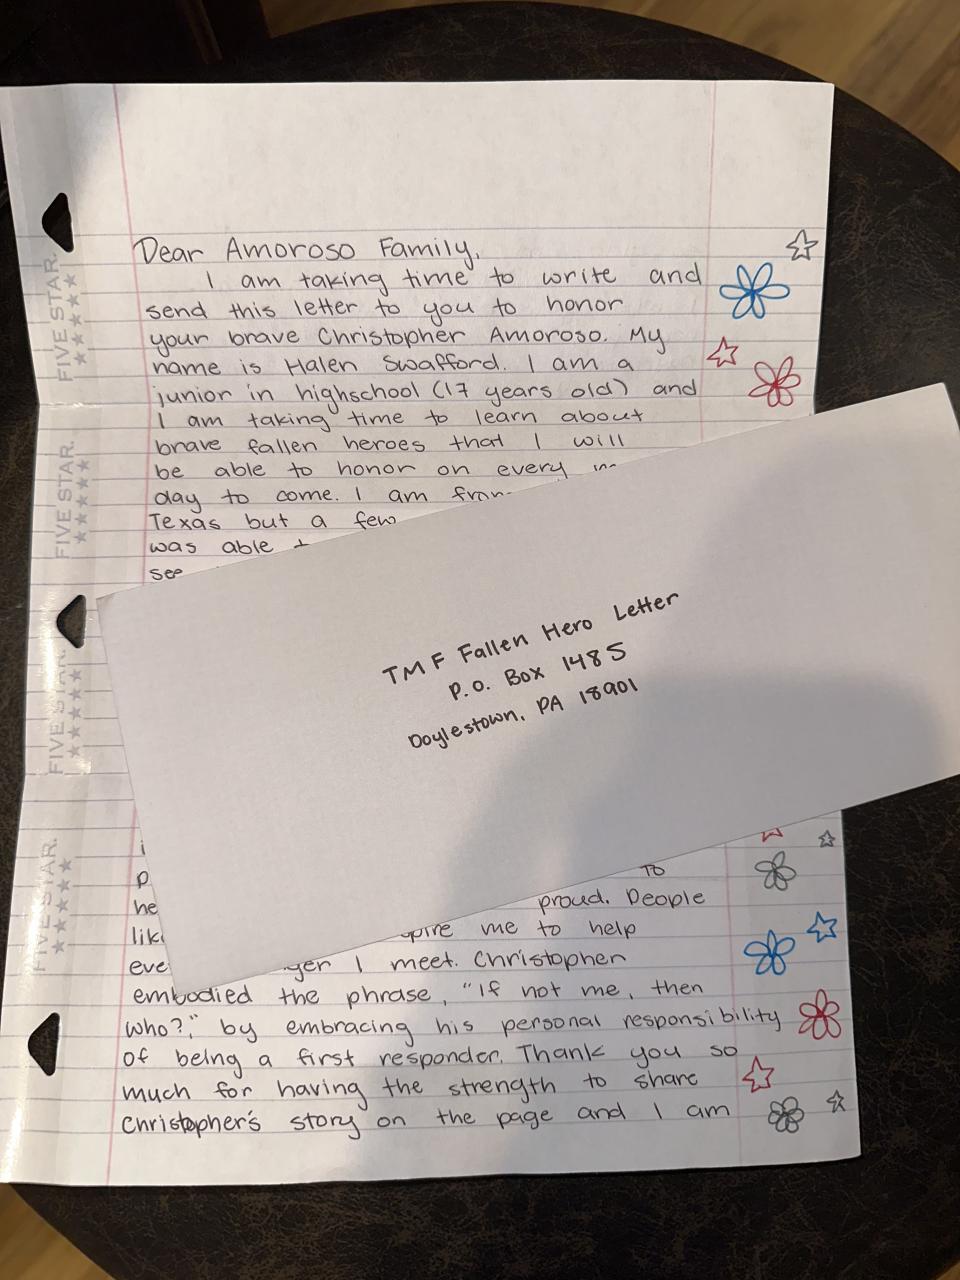 Dear Amoroso Family,
I am taking time to write and
send this letter to you to honor
your brave Christopher Amoroso. My
name is Halen Swafford. I am a
junior in highschool (17 years old) and
I am taking time to learn about
brave fallen heroes that I will
be able to honor on every
day to come. I am from
Texas but a few
was able
see
TMF Fallen Hero Letter
P.O. Box 1485
Doylestown, PA 18901
to
proud. People
me to help
I meet. Christopher
embodied the phrase, "If not me, then
who?," by embracing his personal responsibility
of being a first responder. Thank you so
much for having the strength to share
Christopher's story on the page and I am
FIVE STAR.
FIVE STAR.
FIVE STAR.
FIVE STAR.